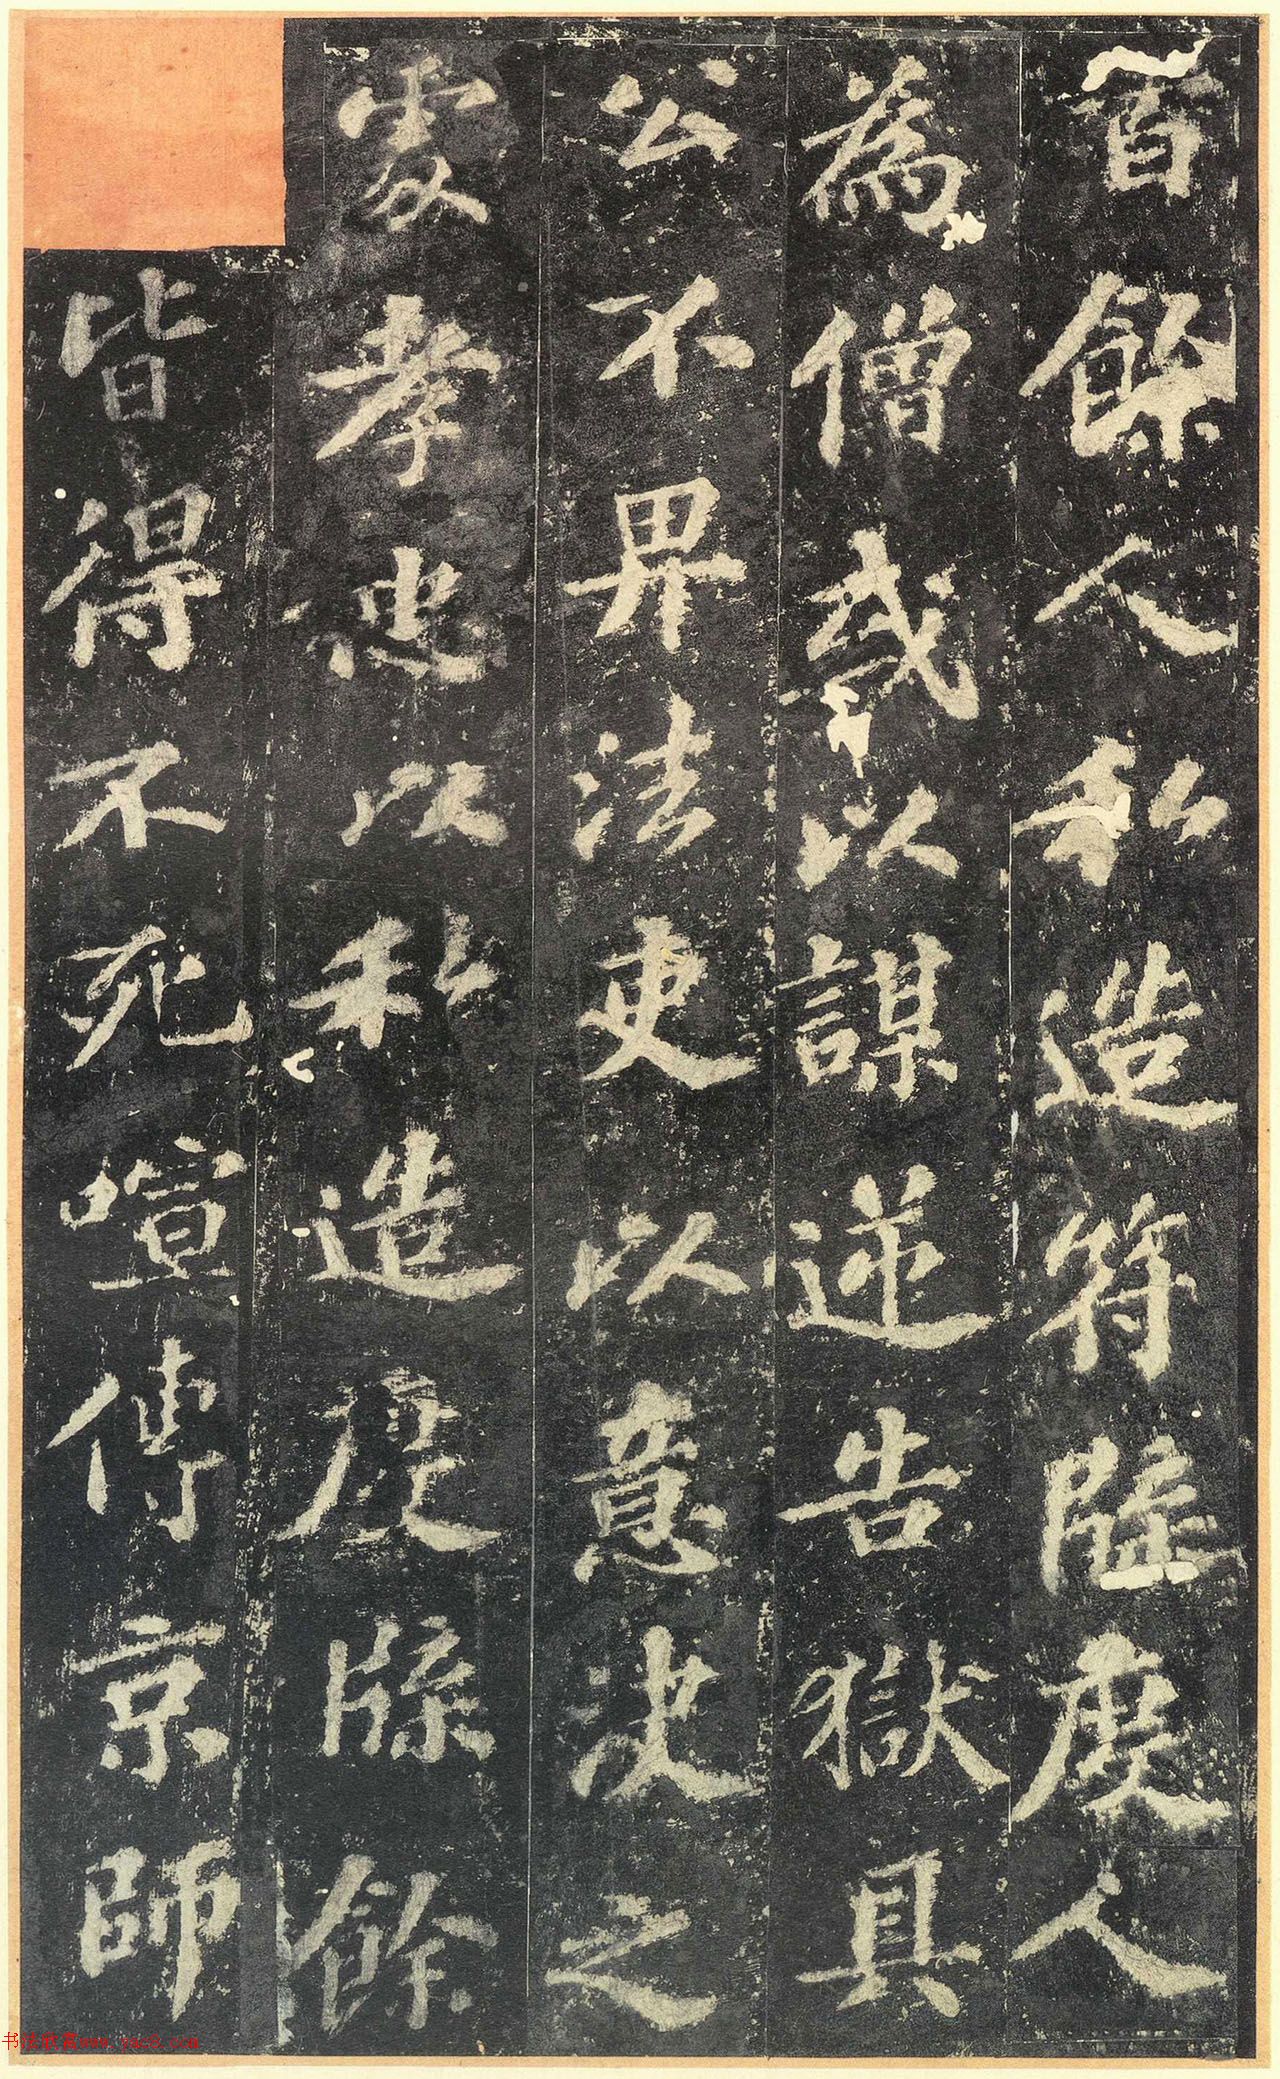 百餘人私造符牒度人
為僧或以謀逆告獄具
公不畀法吏以意決之
處孝忠以私造度牒餘
皆得不死喧傳京師
书法欣赏www.yac8.com